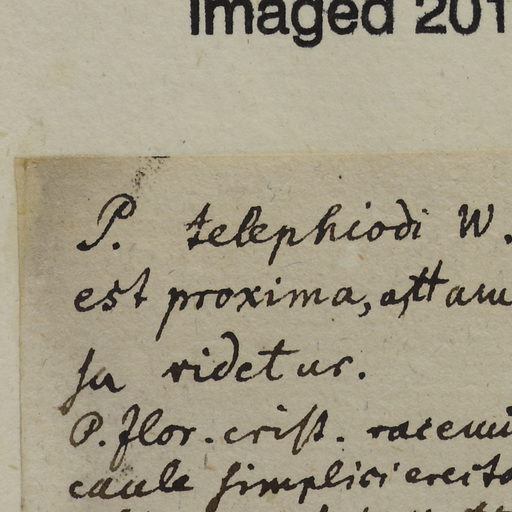 Imaged 201
P. telephiodi W.
est proxima,
su videtur.
P. flor. crist. racemi
caule simplici erecto